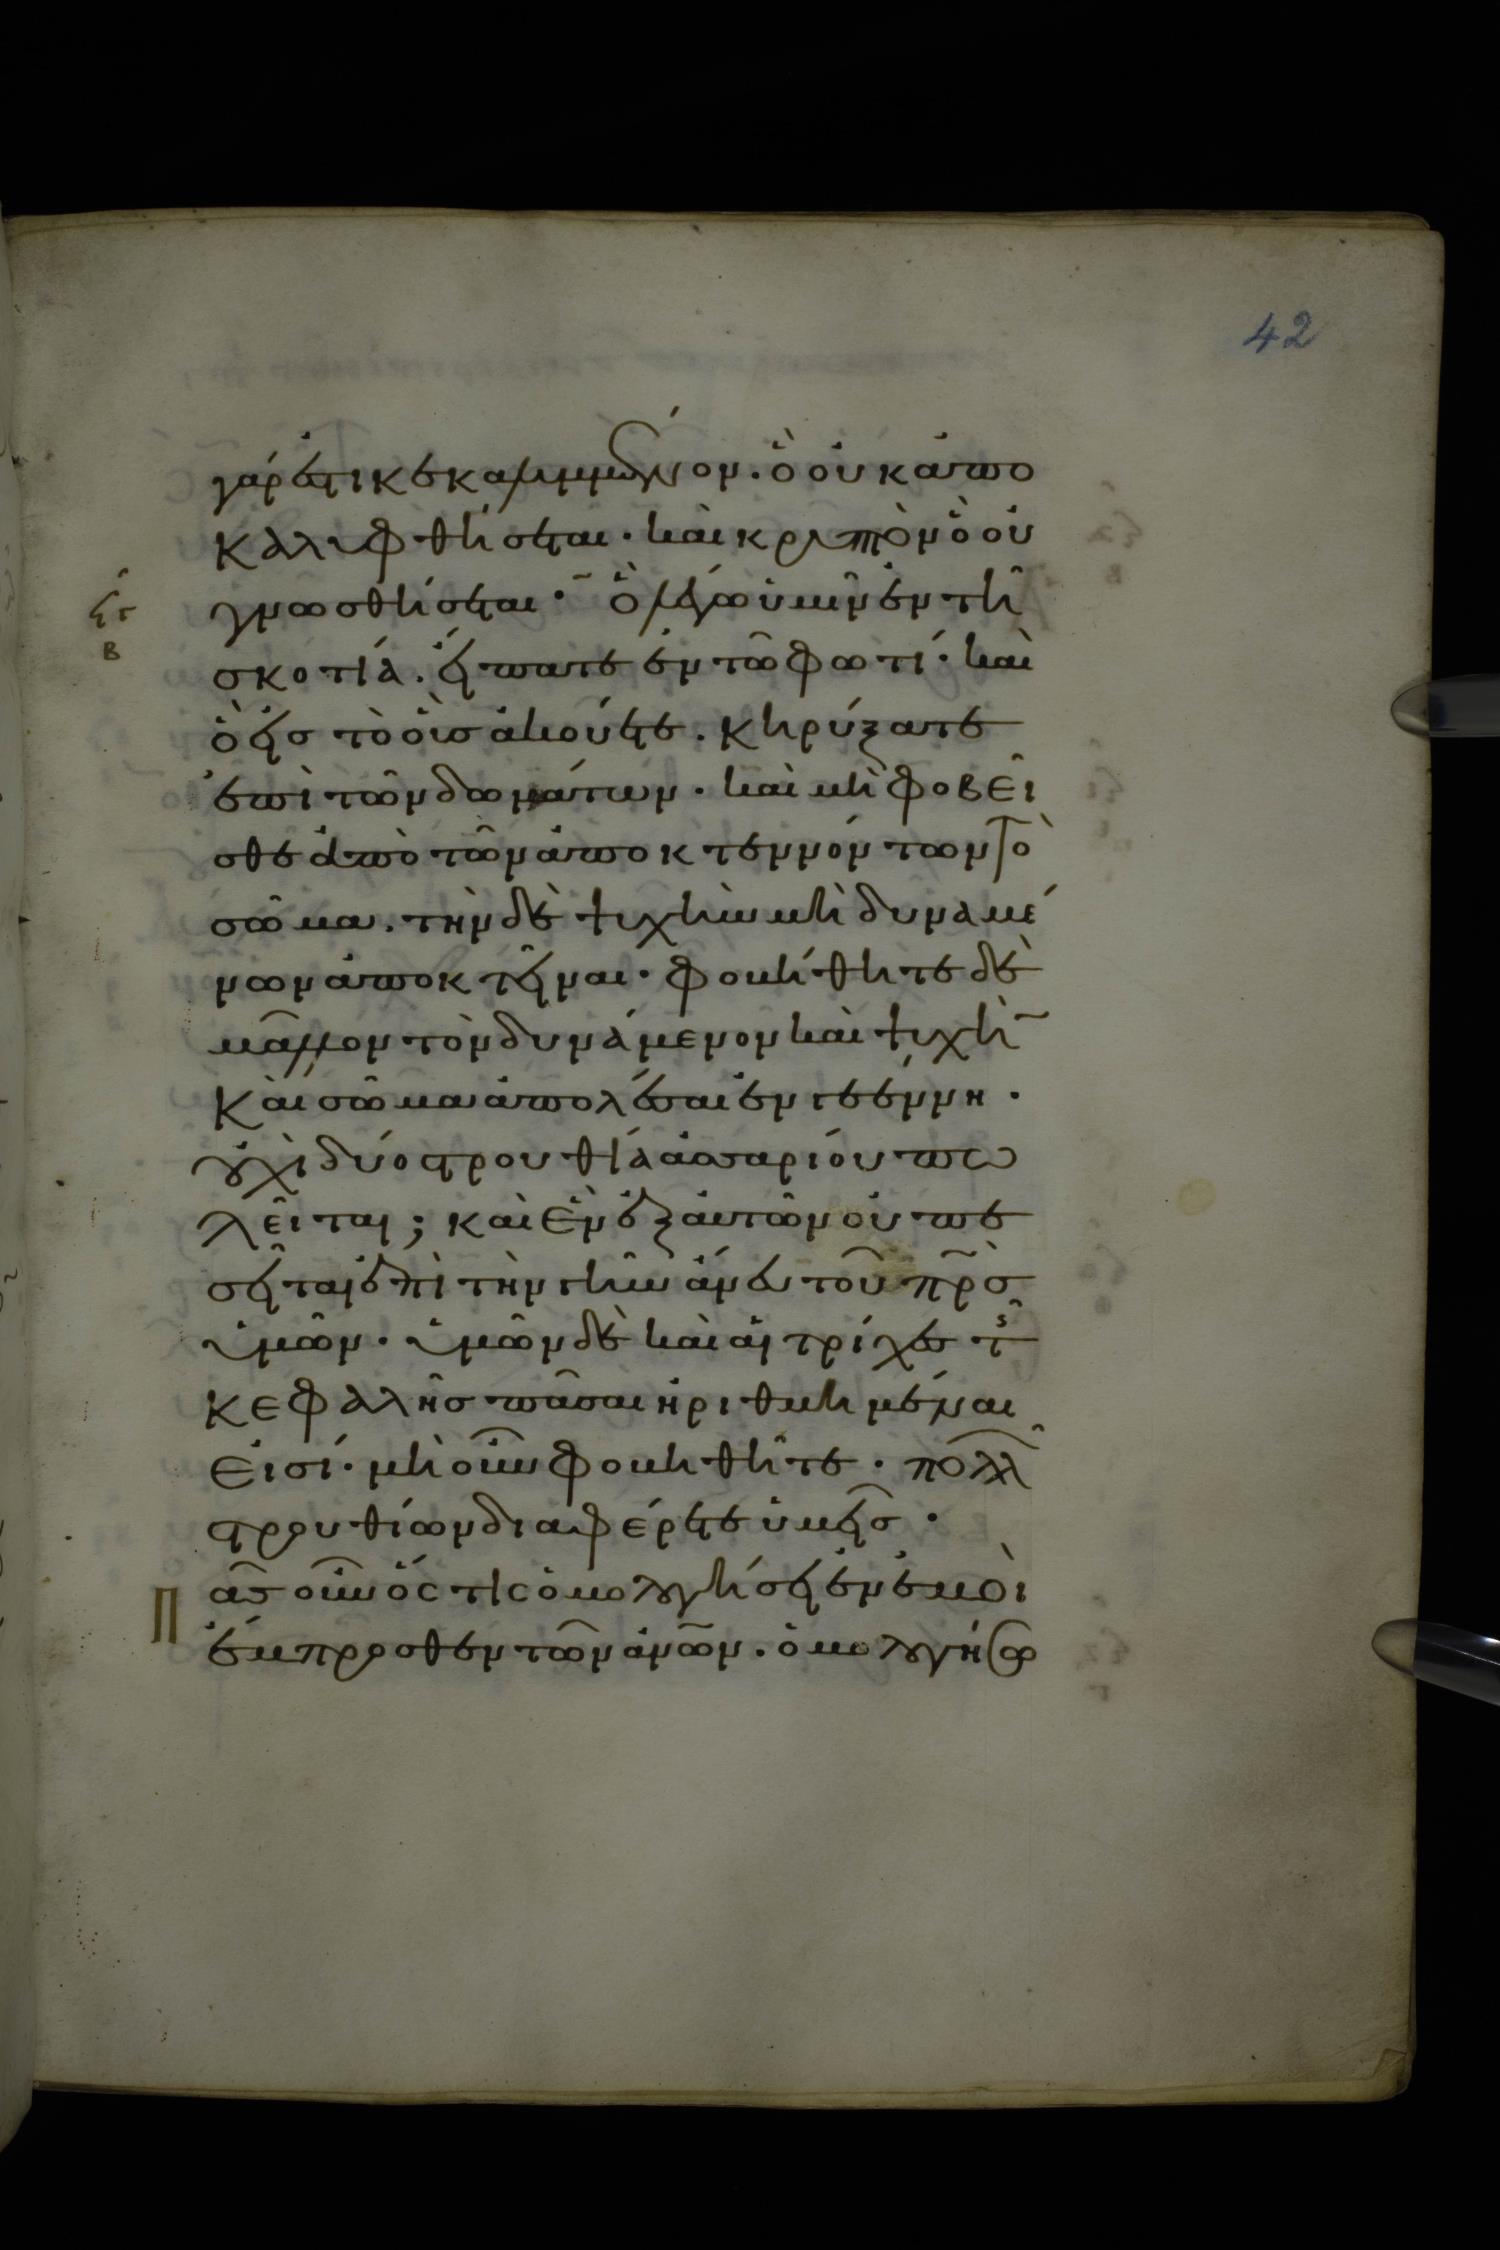 42
γάρ ἐστι κεκαλυμμένον. ὃ οὐκ ἀπο
καλυφθήσεται· καὶ κρυπτὸν ὃ οὐ
γνωσθήσεται· ὃ λέγω ὑμῖν ἐν τῆ
ϟϛ
β
σκοτία. εἴπατε ἐν τῶ φωτί· καὶ
ὃ εἰς τὸ οὖς ἀκούετε. κηρύξατε
ἐπὶ τῶν δωμάτων· καὶ μὴ φοβεῖ
σθε ἀπὸ τῶν ἀποκτεννόντων τὸ
σῶμα. τὴν δὲ ψυχὴν μὴ δυναμέ
νων ἀποκτεῖναι· φοβήθητε δὲ
μᾶλλον τὸν δυνάμενον καὶ ψυχὴ̅
καὶ σῶμα ἀπολέσαι ἐν γεέννη.
οὐχὶ δύο στρουθία ἀσσαρίου πω
λεῖται; καὶ ἓν ἐξ αὐτῶν οὐ πε
σεῖται ἐπὶ τὴν γῆν ἄνευ τοῦ π̅ρ̅ς
ὑμῶν. ὑμῶν δὲ καὶ αἱ τρίχες τῆς
κεφαλῆς πᾶσαι ἠριθμημέναι
εἰσί· μὴ οὖν φοβηθῆτε. πολλῶ̅
στρουθίων διαφέρετε ὑμεῖς.
Πᾶς οὖν ὅς τις ὁμολογήσει ἐν ἐμοὶ
ἔμπροσθεν τῶν ἀνῶν. ὁμολογήσω